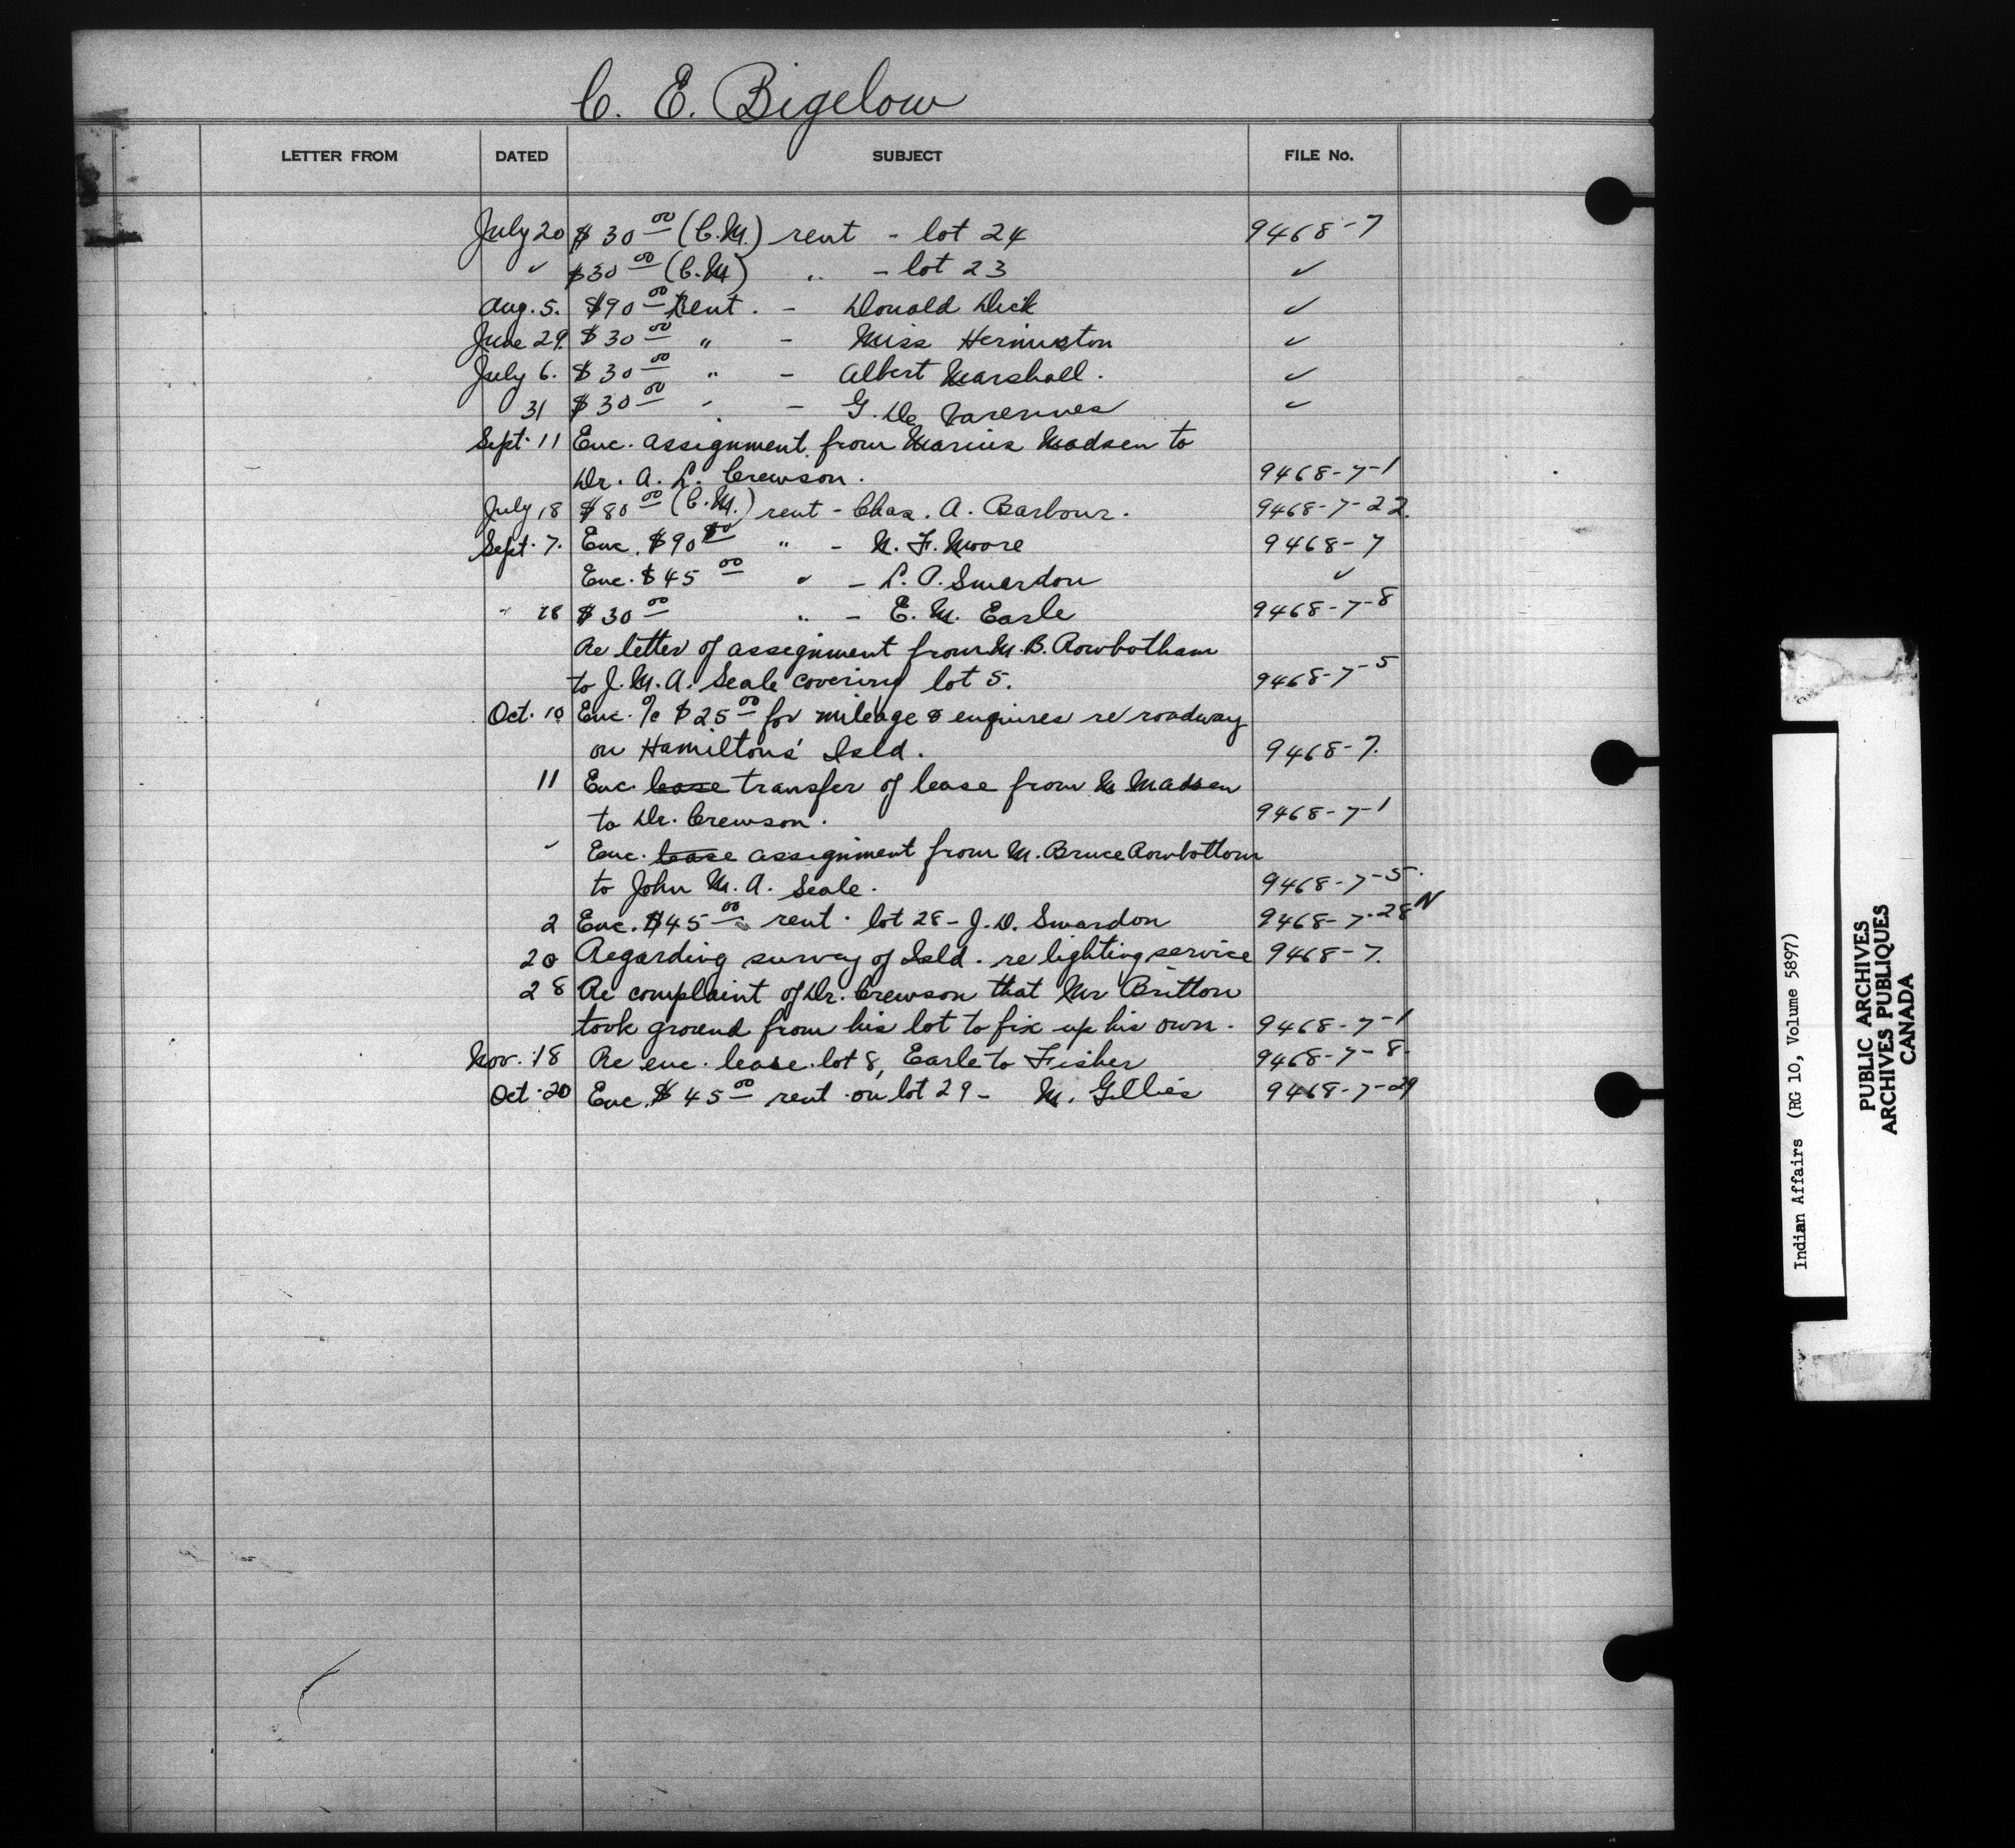 C. E. Bigelow
LETTER FROM DATED SUBJECT FILE No.
July 20 $30 00 (C.M.) rent - lot 24 9468-7
✓ $30 00 (C.M) " - lot 23 ✓
Aug. 5. $90 00 Rent. - Donald Dick ✓
June 29. $30 00 " - Miss Hermiston ✓
July 6. $30 00 " - Albert Marshall. ✓
31 $30 00 " - G. De Varennes ✓
Sept. 11 Enc. assignment from Marius Madsen to
Dr. A. L. Crewson. 9468-7-1
July 18 $80 00 (C.M.) rent - Chas. A. Barbour. 9468-7-22.
Sept. 7. Enc. $90 00 " - N. F. Moore 9468-7
Enc. $45 00 " - L. A. Swerdon ✓
" 18 $30 00 " - E. M. Earle 9468-7-8
Re letter of assignment from M. B. Rowbotham
to J. M. A. Seale covering lot 5. 9468-7-5
Oct. 10 Enc. %c $25 00 for mileage & enquires re roadway
on Hamiltons' Isld. 9468-7.
11 Enc. lease transfer of lease from M. Madsen
to Dr. Crewson. 9468-7-1
✓ Enc. lease assignment from M. Bruce Rowbottom
to John M. A. Seale. 9468-7-5.
2 Enc. $45 00 rent. lot 28 - J. D. Swardon 9468-7-28 N
20 Regarding survey of Isld. re lighting service 9468-7.
28 Re complaint of Dr. Crewson that Mr Britton
took ground from his lot to fix up his own. 9468-7-1
Nov. 18 Re enc. lease lot 8, Earle to Fisher 9468-7-8.
Oct. 20 Enc. $45 00 rent on lot 29 - M. Gillies 9468-7-29
Indian Affairs (RG 10, Volume 5897)
PUBLIC ARCHIVES
ARCHIVES PUBLIQUES
CANADA